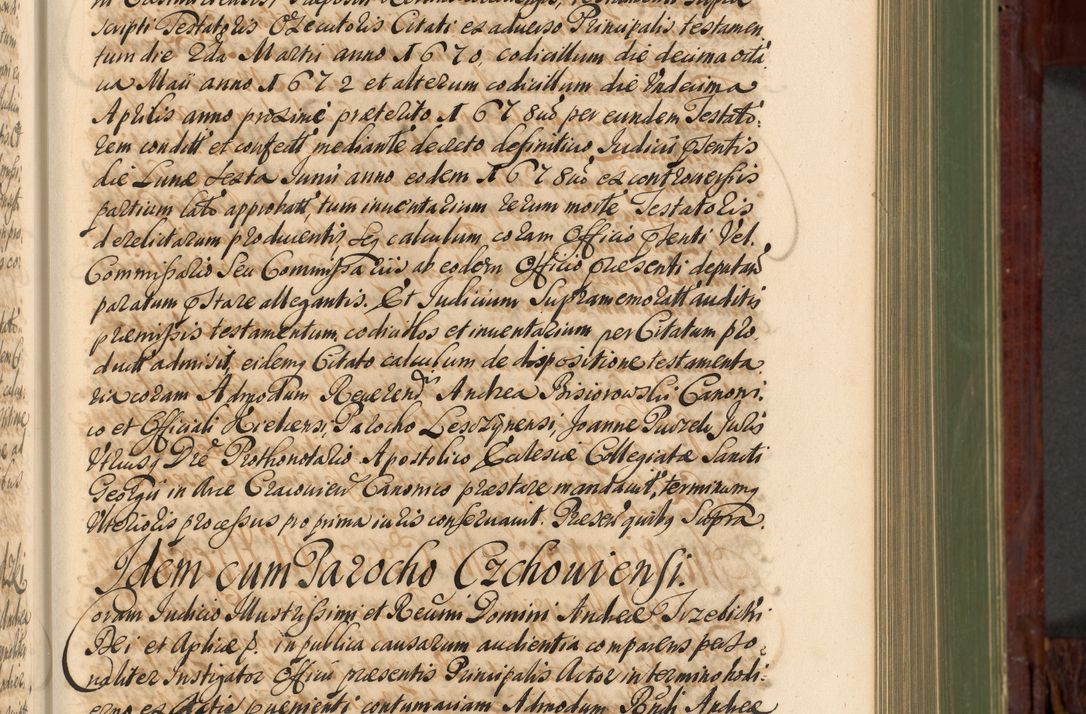 scripti Testatoris Executoris Citati ex adverso Principalis testamen
tum die 2da Martii anno 1670, codicillum die decima octa
va Maii anno 1672 et alterum codicillum die Undecima
Aprilis anno proxime præterito 1678uo per eundem Testato:
rem condit et confect mediante decreto definitivo Iudicii pntis
die Lunæ sexta Iunii anno eodem 1678uo ex controversiis
partium lato approbat, tum inventarium rerum morte Testatoris
derelictarum producentis seq calculum coram Officio pnti Vel
Commissario Seu Commissariis ab eodem Officio præsenti deputand
paratum præstare allegantis. Et Iudicium Supramemorat auditis
præmissis testamentum codicillos et inventarium per Citatum pro
duct admisit, eidemq Citato calculum de dispositione testamenta
ria coram Admodum Reverend Andrea Bisiorowski Canoni
co et Officiali Kielcensi, Parocho Leszynensi, Joanne Puzel Juris
Utriusq Dre Prothonotario Apostolico Ecclesiæ Collegiatæ Sancti
Georgii in Arce Cracovien Canonico præstare mandavit, terminumq
Ulterioris processus pro prima iuris conservavit. Præsen quibq Supra.
Idem cum Parocho Czchoviensi.
Coram Iudicio Illustrissimi et Reverendissimi Domini Andreæ Trzebicki
Dei et Aplicæ S. in publica causarum audientia comparens perso
naliter Instigator Officii præsentis Principalis Actor in termino hodi
erno ex Citatione evenienti contumaciam Admodum Rndi Andreæ